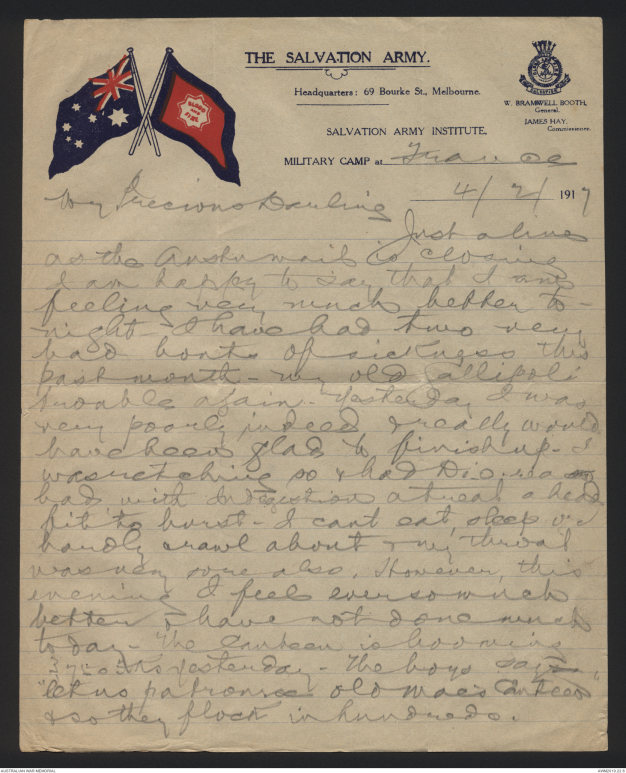 THE SALVATION ARMY.
Headquarters: 69 Bourke St., Melbourne.
W. BRAMWELL BOOTH,
General.
JAMES HAY,
Commissioner.
SALVATION ARMY INSTITUTE,
MILITARY CAMP at France
BLOOD AND FIRE
4/2/1917
My Precious Darling
Just a line
as the Austn mail is closing
I am happy to say that I am
feeling very much better to-
night - I have had two very
bad bouts of sickness this
past month - my old Gallipoli
trouble again. Yesterday I was
very poorly indeed & really would
have been glad to finish up - I
was retching so & had
bad with Indigestion & head
fit to burst - I cant eat, sleep or
hardly crawl about & my throat
was very sore also. However, this
evening I feel ever so much
better & have not done much
today - The Canteen is booming
yesterday - The boys say
"let us patronise old Mac's Canteen"
& so they flock in hundreds.
AUSTRALIAN WAR MEMORIAL